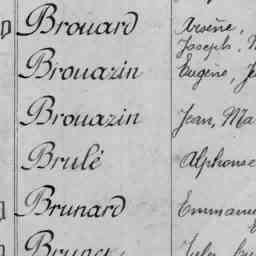 Brouard Arsène,
Joseph,
Brouazin Eugène,
Brouazin Jean, Ma
Brulé Alphonse
Brunard Emmanu